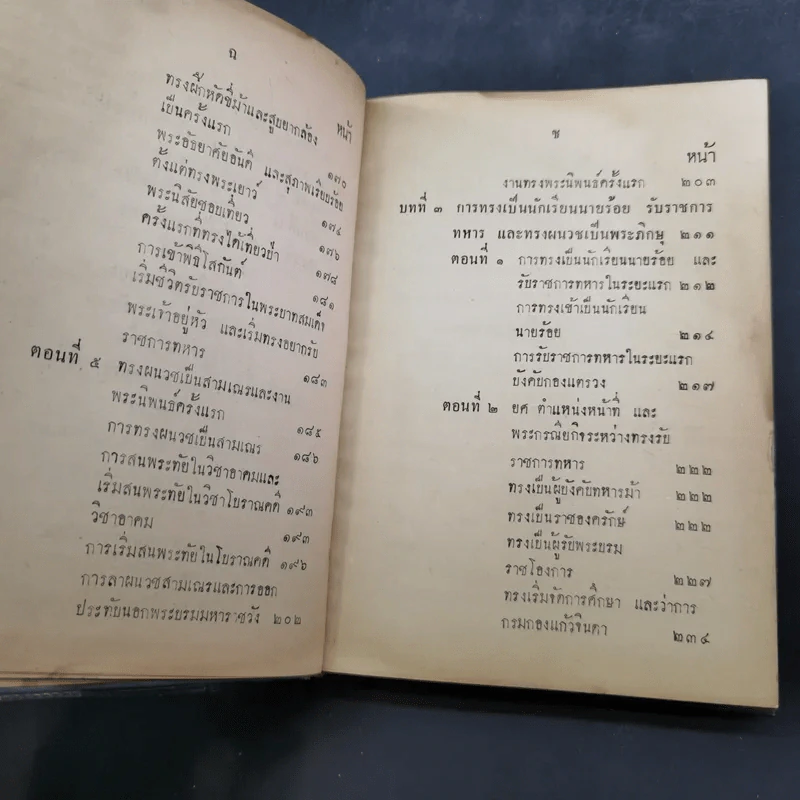 ฉ
หน้า
ทรงฝึกหัดขี่ม้าและสูบยากล้อง
เป็นครั้งแรก ๑๗๐
พระอัธยาศัยอันดี และสุภาพเรียบร้อย
ตั้งแต่ทรงพระเยาว์ ๑๗๔
พระนิสัยชอบเที่ยว ๑๗๖
ครั้งแรกที่ทรงได้เที่ยวป่า ๑๗๘
การเข้าพิธีโสกันต์ ๑๘๑
เริ่มชีวิตรับราชการในพระบาทสมเด็จ
พระเจ้าอยู่หัว และเริ่มทรงอยากรับ
ราชการทหาร ๑๘๓
ตอนที่ ๕ ทรงผนวชเป็นสามเณรและงาน
พระนิพนธ์ครั้งแรก ๑๘๕
การทรงผนวชเป็นสามเณร ๑๘๖
การสนพระทัยในวิชาอาคมและ
เริ่มสนพระทัยในวิชาโบราณคดี ๑๙๓
วิชาอาคม ๑๙๓
การเริ่มสนพระทัยในโบราณคดี ๑๙๖
การลาผนวชสามเณรและการออก
ประทับนอกพระบรมมหาราชวัง ๒๐๒
ช
หน้า
งานทรงพระนิพนธ์ครั้งแรก ๒๐๓
บทที่ ๓ การทรงเป็นนักเรียนนายร้อย รับราชการ
ทหาร และทรงผนวชเป็นพระภิกษุ ๒๑๑
ตอนที่ ๑ การทรงเป็นนักเรียนนายร้อย และ
รับราชการทหารในระยะแรก ๒๑๒
การทรงเข้าเป็นนักเรียน
นายร้อย ๒๑๔
การรับราชการทหารในระยะแรก
บังคับกองแตรวง ๒๑๗
ตอนที่ ๒ ยศ ตำแหน่งหน้าที่ และ
พระกรณียกิจระหว่างทรงรับ
ราชการทหาร ๒๒๒
ทรงเป็นผู้บังคับทหารม้า ๒๒๒
ทรงเป็นราชองครักษ์ ๒๒๒
ทรงเป็นผู้รับพระบรม
ราชโองการ ๒๒๗
ทรงเริ่มจัดการศึกษา และว่าการ
กรมกองแก้วจินดา ๒๓๔